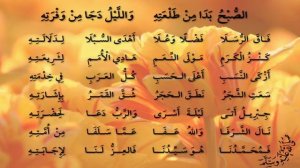 الصُّبْحُ بَدَا مِنْ طَلْعَتِهِ وَاللَّيْلُ دَجَا مِنْ وَفْرَتِهِ
فَاقَ الرُّسُلَا فَضْلًا وَعُلَا أَهْدَى السُّبُلَا لِدَلَالَتِهِ
كَنْزُ الْكَرَمِ مَوْلَى النِّعَمِ هَادِي الْأُمَمِ لِشَرِيعَتِهِ
أَزْكَى النَّسَبِ أَعْلَى الْحَسَبِ كُلُّ الْعَرَبِ فِي خِدْمَتِهِ
سَعَتِ الشَّجَرُ نَطَقَ الْحَجَرُ شُقَّ الْقَمَرُ بِإِشَارَتِهِ
جِبْرِيلُ أَتَى لَيْلَةَ أَسْرَى وَالرَّبُّ دَعَا لِحَضْرَتِهِ
نَالَ الشَّرَفَا وَاللهُ عَفَا عَمَّا سَلَفَا مِنْ أُمَّتِهِ
فَمُحَمَّدُنَا هُوَ سَيِّدُنَا فَالْعِزُّ لَنَا لِإِجَابَتِهِ